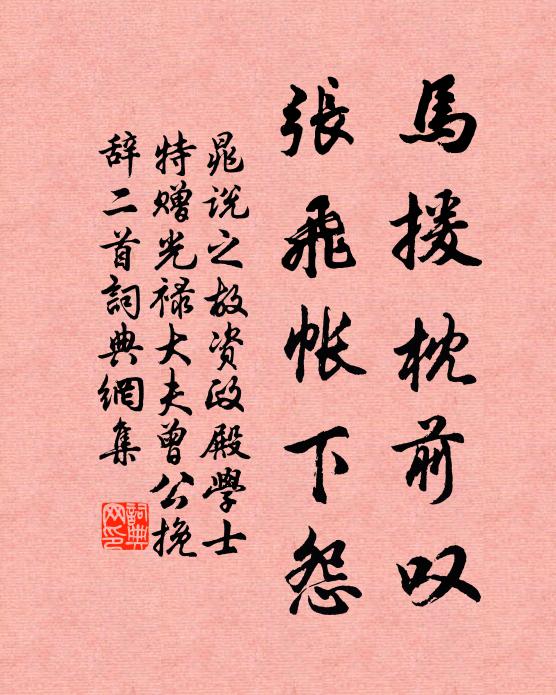 馬援枕前叹
張飛帐下怨
晁说之故资政殿學士
特赠光禄大夫曾公挽
辞二首詞典網集
詞典
网印